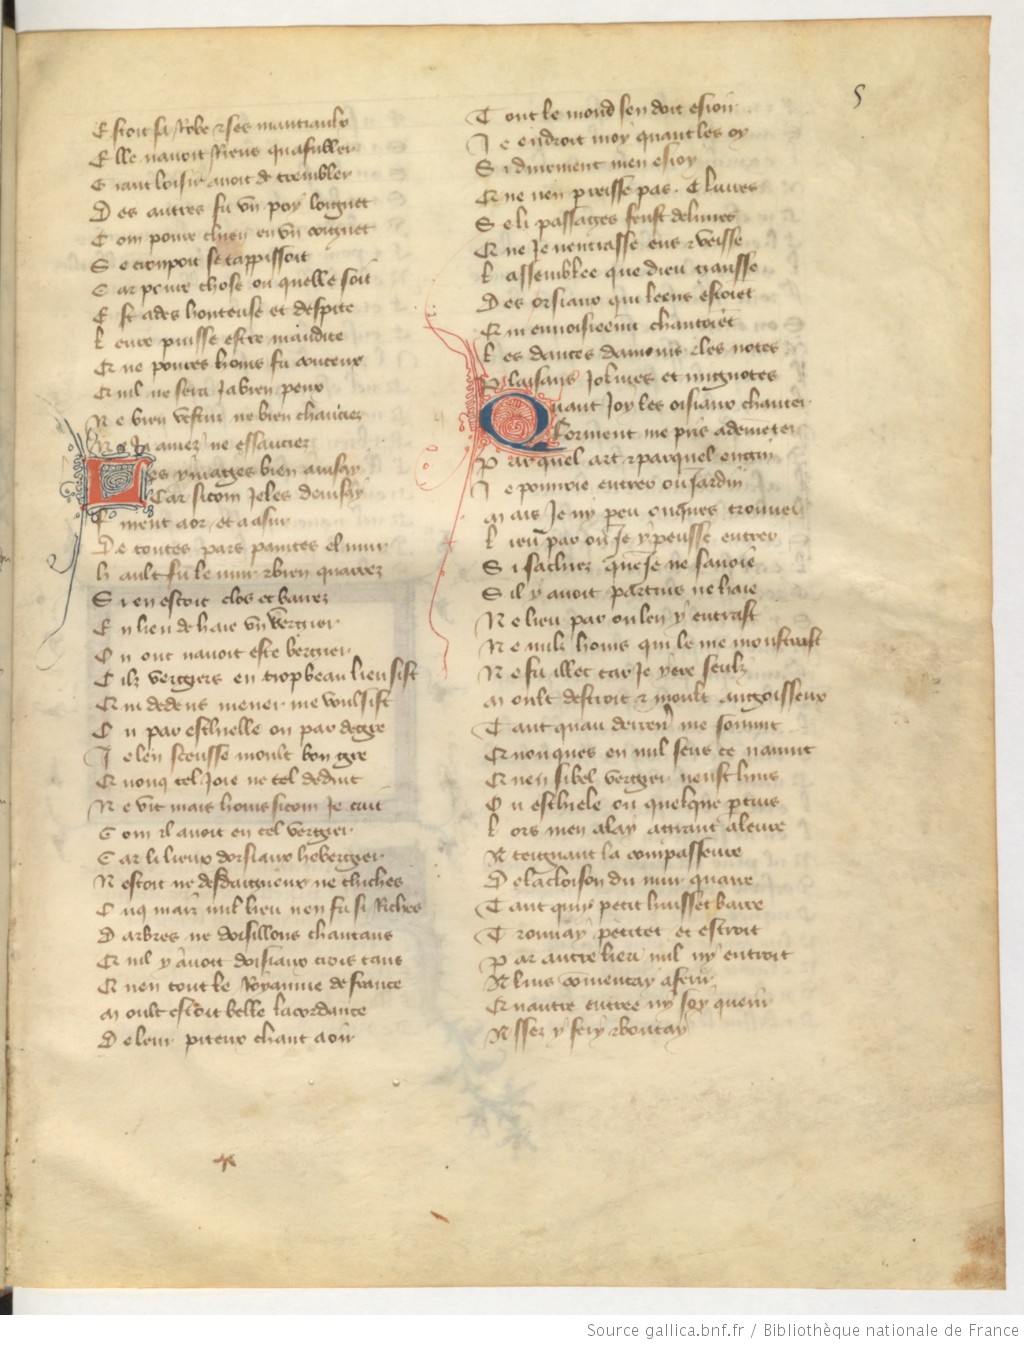 5
Estoit sa Robe & ses mantiaulx
Elle navoit Riens quafuller
Grant loisir avoit de trembler
Des autres fu un poy loignet
Com povre chien en un coignet
Se cropoit se tappissoit
Car povre chose ou quelle soit
Est ades honteuse et despite
Leure puisse estre maudite
Que povres homs fu conceux
Que nil ne sera Ja bien peux
Ne bien vestuz ne bien chauciez
Ne Ja amez ne essauciez
Les ymages bien avisay
Car sicom Je les devisay
Furent a or et a asur
De toutes pars paintes el mur
Hault fu le mur & bien quarrez
Si en estoit clos et barrez
En lieu de haie un vergier
Ou onc navoit esté bergier
Cilz vergiers en trop beau lieu sist
Qui dedens mener me voulsist
Ou par eschielle ou par degre
Je len sceusse moult bon gre
Que nonq tel Joie ne tel deduit
Ne vit mais homs sicom Je cuit
Com il avoit en cel vergier
Car li lieux doisiaux hebergier
Nestoit ne desdaigneux ne chiches
Onq mais nul lieu nen fu si Riches
Darbres ne doisillons chantans
Quil y avoit doisiaux trois tans
Quen tout le Royaume de france
Moult estoit belle lacordance
De leur piteux chant a oir
Tout le mond sen doit esioir
Je endroit moy quant les oy
Si durement men esioy
Que nen preisse pas C livres
Se li passages feust delivres
Que Je nentrasse ens & veisse
Lassemblee que dieu gausse
Des oisiaux qui leens estoient
Qui envoisieemt chantoient
Les dances damours & les notes
Plaisans Jolives et mignotes
Quant Joy les oisiaux chanter
Forment me pris a dementer
Par quel art & par quel engin
Je pourroie entrer ou Jardin
Mais Je ny peu onques trouver
Lieu par ou Je y peusse entrer
Si sachiez que Je ne savoie
Sil y avoit partuis ne haie
Ne lieu par ou len y entrast
Ne nulz homs qui le me monstrast
Ne fu illec car Je yere seulz
Moult destroit & moult angoisseux
Tant quau derren me sovint
Que nonques en nul sens ce navint
Quen si bel vergier neust huis
Ou eschiele ou quelque ptuis
Lors men alay atirant aleure
Ateignant la compasseure
De la cloison du mur quarre
Tant quun petit huisset barre
Trouvay petitet et estroit
Par autre lieu nul ny entroit
A luis comencay a ferir
Quautre entree ny soy querir
Assez y feri & boutay